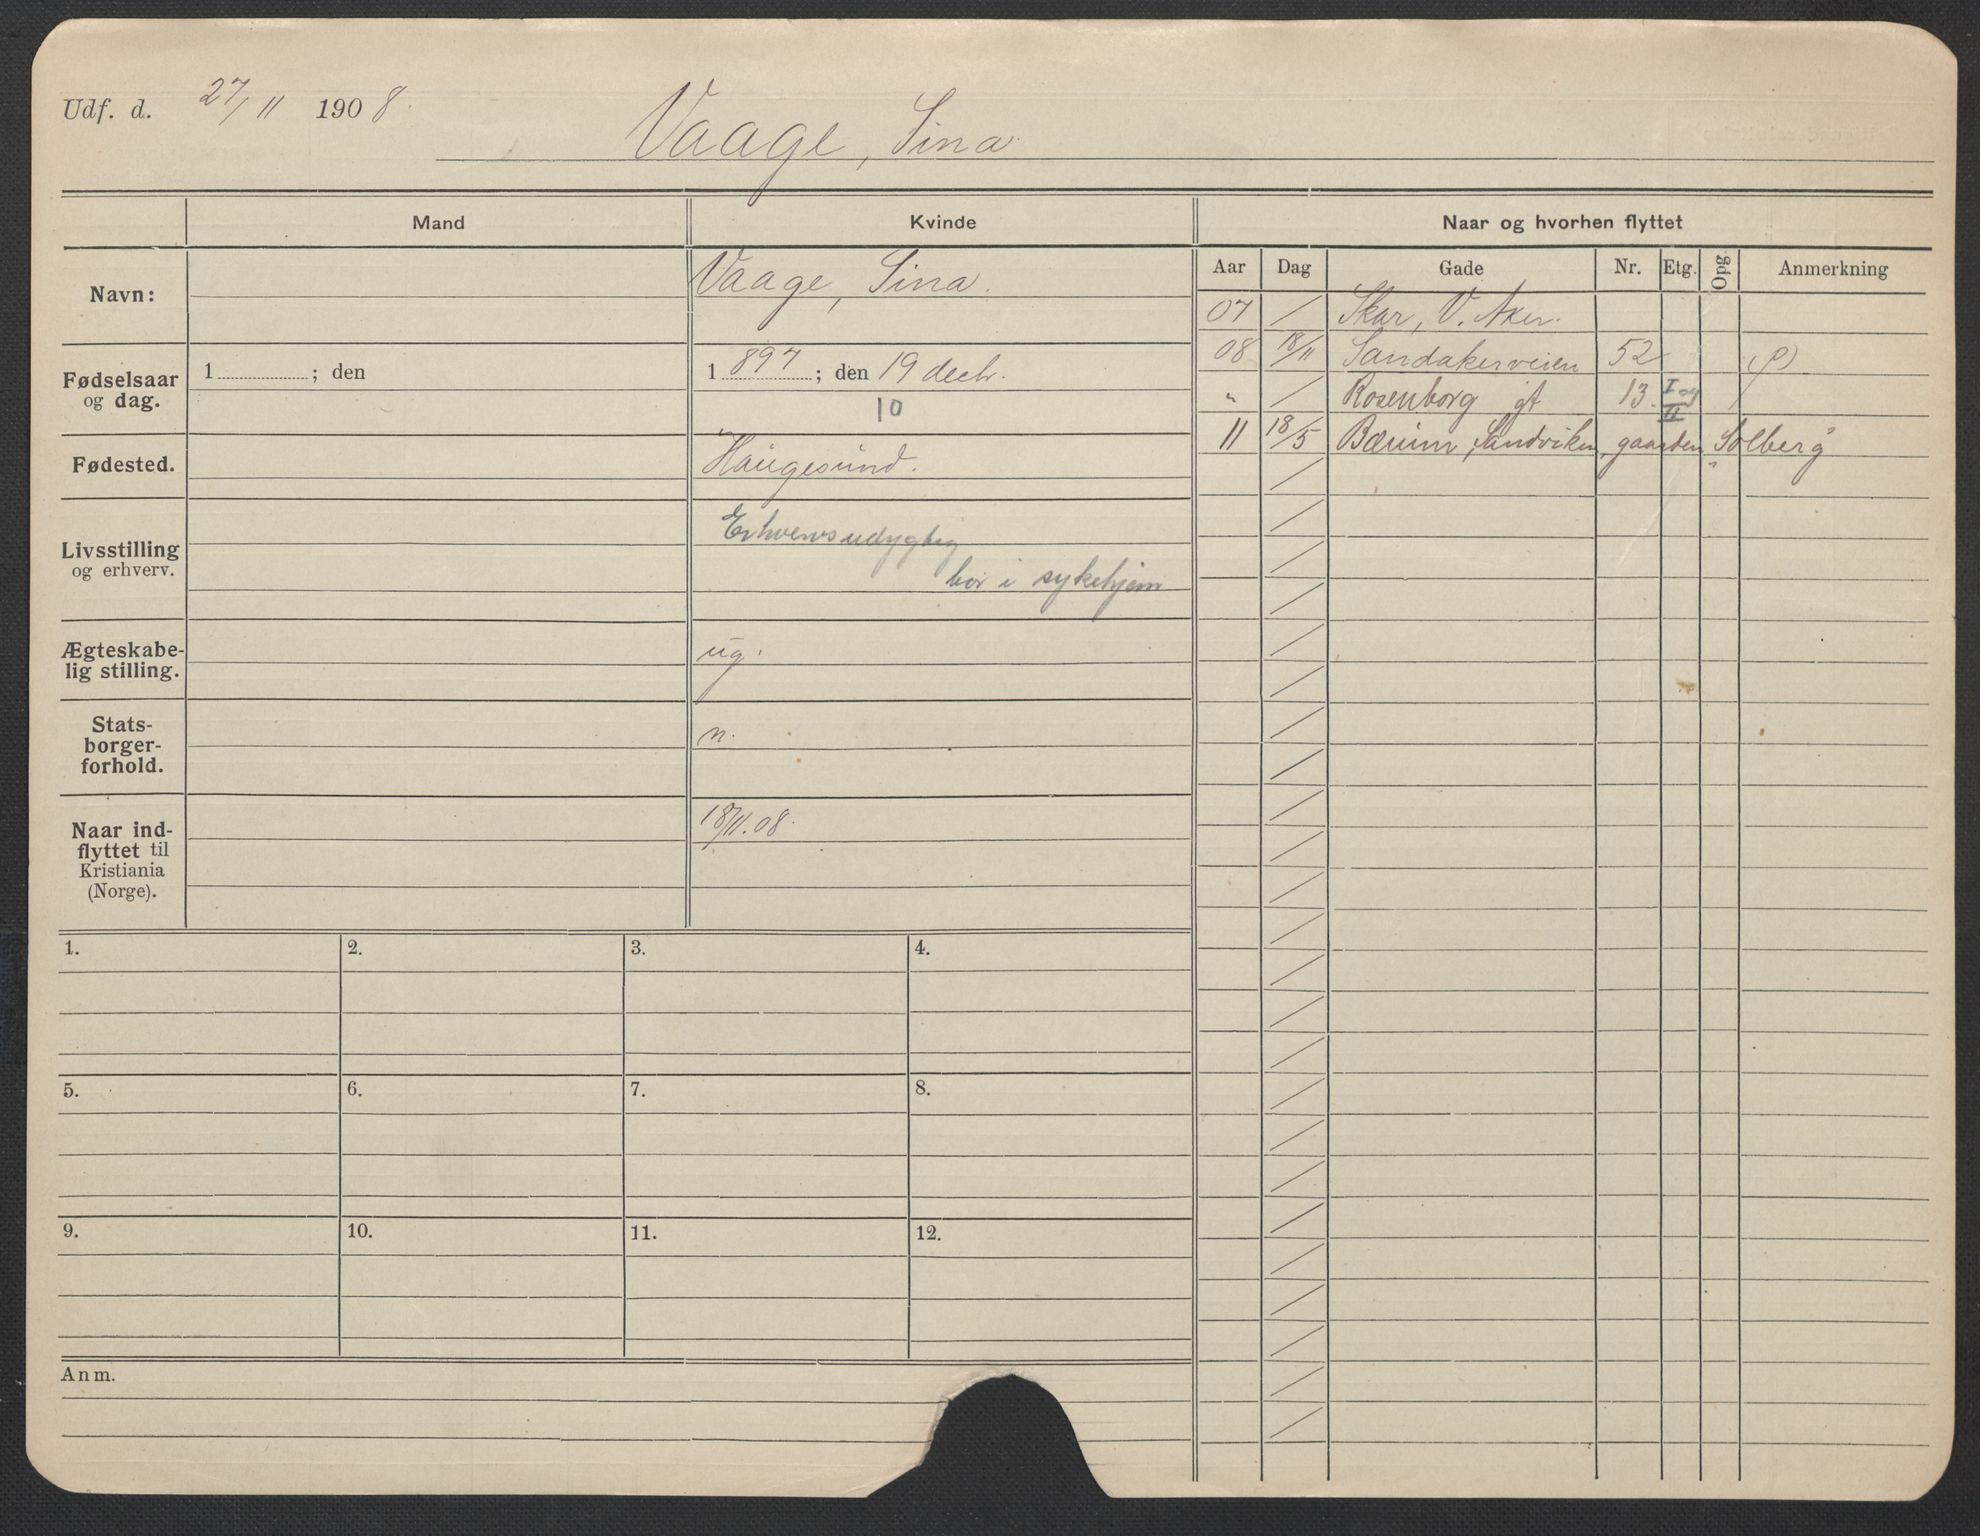 Udf. d. 27/11 1908.
Vaage, Sina
Mand Kvinde Naar og hvorhen flyttet
Navn:
Vaage, Sina.
Fødselsaar og dag.
1 ; den
1897 ; den 19 decbr.
10
Fødested.
Haugesund.
Livsstilling og erhverv.
Erhvervsudygtig
bor i sykehjem
Ægteskabe-
lig stilling.
ug.
Stats-
borger-
forhold.
n.
Naar ind-
flyttet til
Kristiania
(Norge).
18/11.08.
Aar Dag Gade Nr. Etg. Opg Anmerkning
07 / Skar, V. Aker.
08 18/11 Sandakerveien 52 (P)
" / Rosenborg gt 13. I og II
11 18/5 Bærum, Sandviken, gaarden "Solberg"
1. 2. 3. 4.
5. 6. 7. 8.
9. 10. 11. 12.
Anm.